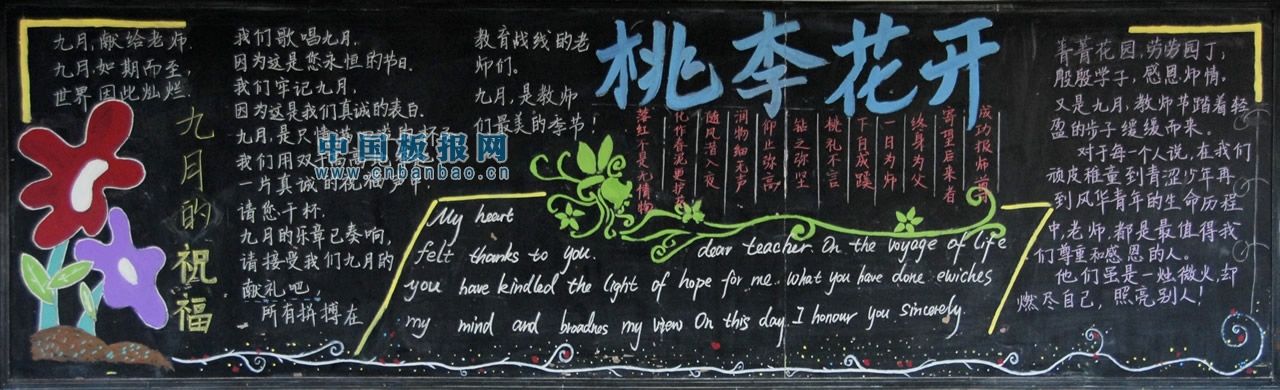 桃李花开
九月,献给老师.
九月,如期而至,
世界因此灿烂.
九月的祝福
我们歌唱九月.
因为这是您永恒的节日.
我们牢记九月,
因为这是我们真诚的表白.
九月,是只情满
我们用双手
一片真诚的祝福声中.
请您干杯.
九月的乐章已奏响,
请接受我们九月的
献礼吧
所有拼搏在
教育战线的老
师们.
九月,是教师
们最美的季节!
中国板报网
www.cnbanbao.cn
成功报师尊
寄望后来者
终身为父
一日为师
下自成蹊
桃礼不言
钻之弥坚
仰止弥高
润物细无声
随风潜入夜
化作春泥更护花
落红不是无情物
My heart
felt thanks to you. dear teacher. On the voyage of life
you have kindled the light of hope for me. What you have done ewiches
my mind and broadnes my view On this day. I honour you sincerely.
菁菁花园,劳劳园丁,
殷殷学子,感恩师情.
又是九月,教师节踏着轻
盈的步子缓缓而来.
对于每一个人说,在我们
顽皮稚童到青涩少年再
到风华青年的生命历程
中,老师,都是最值得我
们尊重和感恩的人.
他们虽是一灶微火,却
燃尽自己,照亮别人!